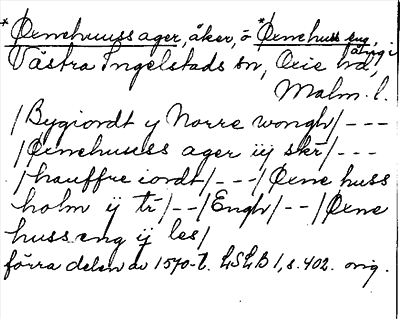 *Ørnehuuss ager, åker, o *Ørnehuss eng, äng i
Västra Ingelstads sn, Oxie hd,
Malm. l.
/Bygiordt y Norre wongh/---
/Ørnehuuss ager iij skr/---
/hauffre iordt/---/Ørne huss
holm ij tr/--/Engh/--/Ørne
huss eng ij les/
förra delen av 1570-t. LSLB 1, s. 402. orig.